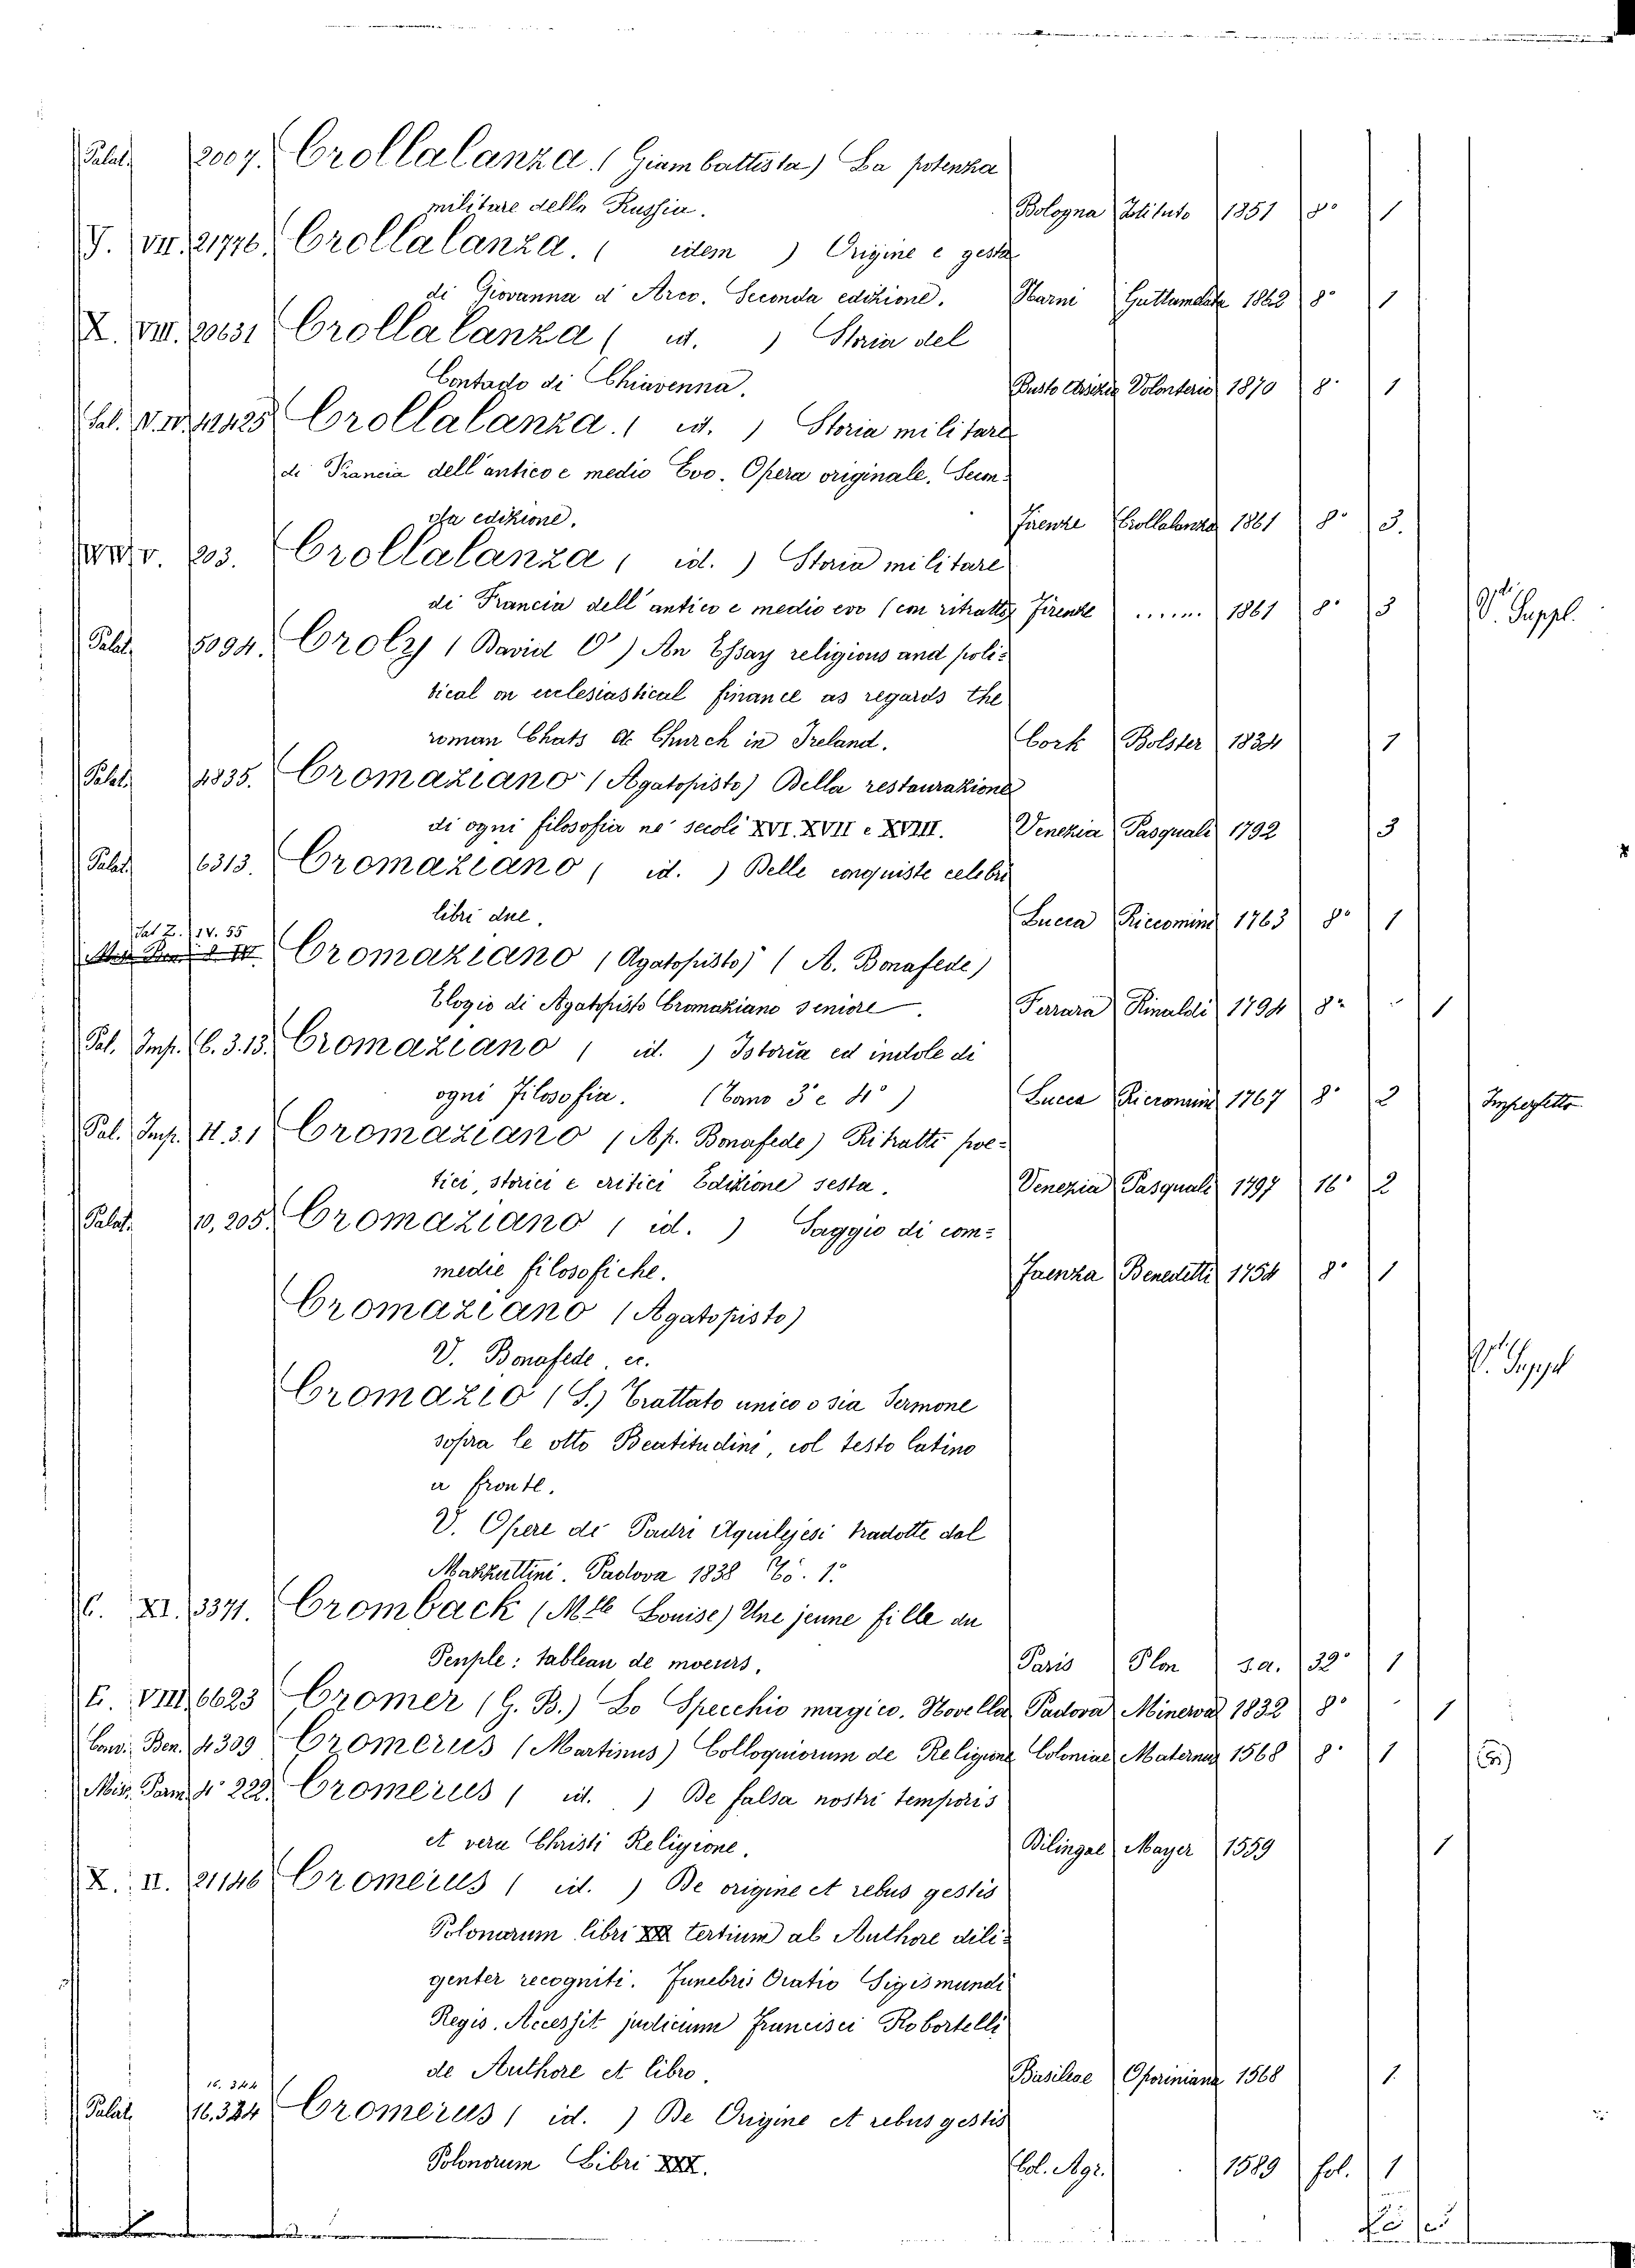 Palat. 2007. Crollalanza (Giambattista) La potenza
militare della Russia. Bologna Istituto 1851 8° 1
J. VII. 21776. Crollalanza. ( idem ) Origine e gesta
di Giovanna d'Arco. Seconda edizione. Narni Gattamelata 1862 8° 1
X. VIII. 20631 Crollalanza ( id. ) Storia del
Contado di Chiavenna. Busto Arsizio Volonterio 1870 8° 1
Sal. 11425 Crollalanza. ( id. ) Storia militare
di Francia dell'antico e medio Evo. Opera originale. Secon-
da edizione. Firenze Crollalanza 1861 8° 3.
V. 203. Crollalanza ( id. ) Storia militare
di Francia dell'antico e medio evo (con ritratto) Firenze ...... 1861 8° 3 V. Suppl.
Palat. 5094. Croly (David O) An Essay religious and poli=
tical on ecclesiastical finance as regards the
roman Chats ol Church in Ireland. Cork Bolster 1834 1
Palat. 4835. Cromaziano (Agatopisto) Della restaurazione
di ogni filosofia ne' secoli XVI. XVII e XVIII. Venezia Pasquali 1792 3
Palat. 6313. Cromaziano ( id. ) Delle conquiste celebri
libri due. Lucca Riccomini 1763 8° 1
Sal Z. IV. 55
Cromaziano (Agatopisto) (A. Bonafede)
Elogio di Agatopisto Cromaziano seniore. Ferrara Rinaldi 1794 8° 1
Pal. Imp. C. 3. 13. Cromaziano ( id. ) Istoria ed indole di
ogni Filosofia. (Tomo 3° e 4°) Lucca Riccomini 1767 8° 2 Imperfetto
Pal. Imp. H. 3. 1 Cromaziano (Ap. Bonafede) Ritratti poe=
tici, storici e critici Edizione sesta. Venezia Pasquali 1797 16° 2
Palat. 10,205. Cromaziano ( id. ) Saggio di com=
medie filosofiche. Faenza Benedetti 1754 8° 1
Cromaziano (Agatopisto)
V. Bonafede, ec. V. Suppl
Cromazio (S.) Trattato unico o sia Sermone
sopra le otto Beatitudini, col testo latino
a fronte.
V. Opere de Padri Aquilejesi tradotte dal
Mazzettini. Padova 1838 To. 1°
C. XI. 3371. Cromback (Mlle Louise) Une jeune fille du
Peuple: tableau de moeurs. Paris Plon s.a. 32° 1
E. VIII. 6623 Cromer (G. B.) Lo Specchio magico. Novella Padova Minerva 1832 8° 1
Conv. Ben. 4309 Cromerus (Martinus) Colloquiorum de Religione Coloniae Maternus 1568 8° 1
Mis. Pam. 4° 222. Cromerus ( id. ) De falsa nostri temporis
et vera Christi Religione. Dilingae Mayer 1559 1
X. II. 21146 Cromerus ( id. ) De origine et rebus gestis
Polonorum libri XXX tertium ab Authore dili=
genter recogniti. Funebris Oratio Sigismundi
Regis. Accessit judicium Francisci Robortelli
de Authore et libro. Basileae Oporiniana 1568 1
16. 344
Palat. 16,324 Cromerus ( id. ) De Origine et rebus gestis
Polonorum Libri XXX. Col. Agr. 1589 fol. 1